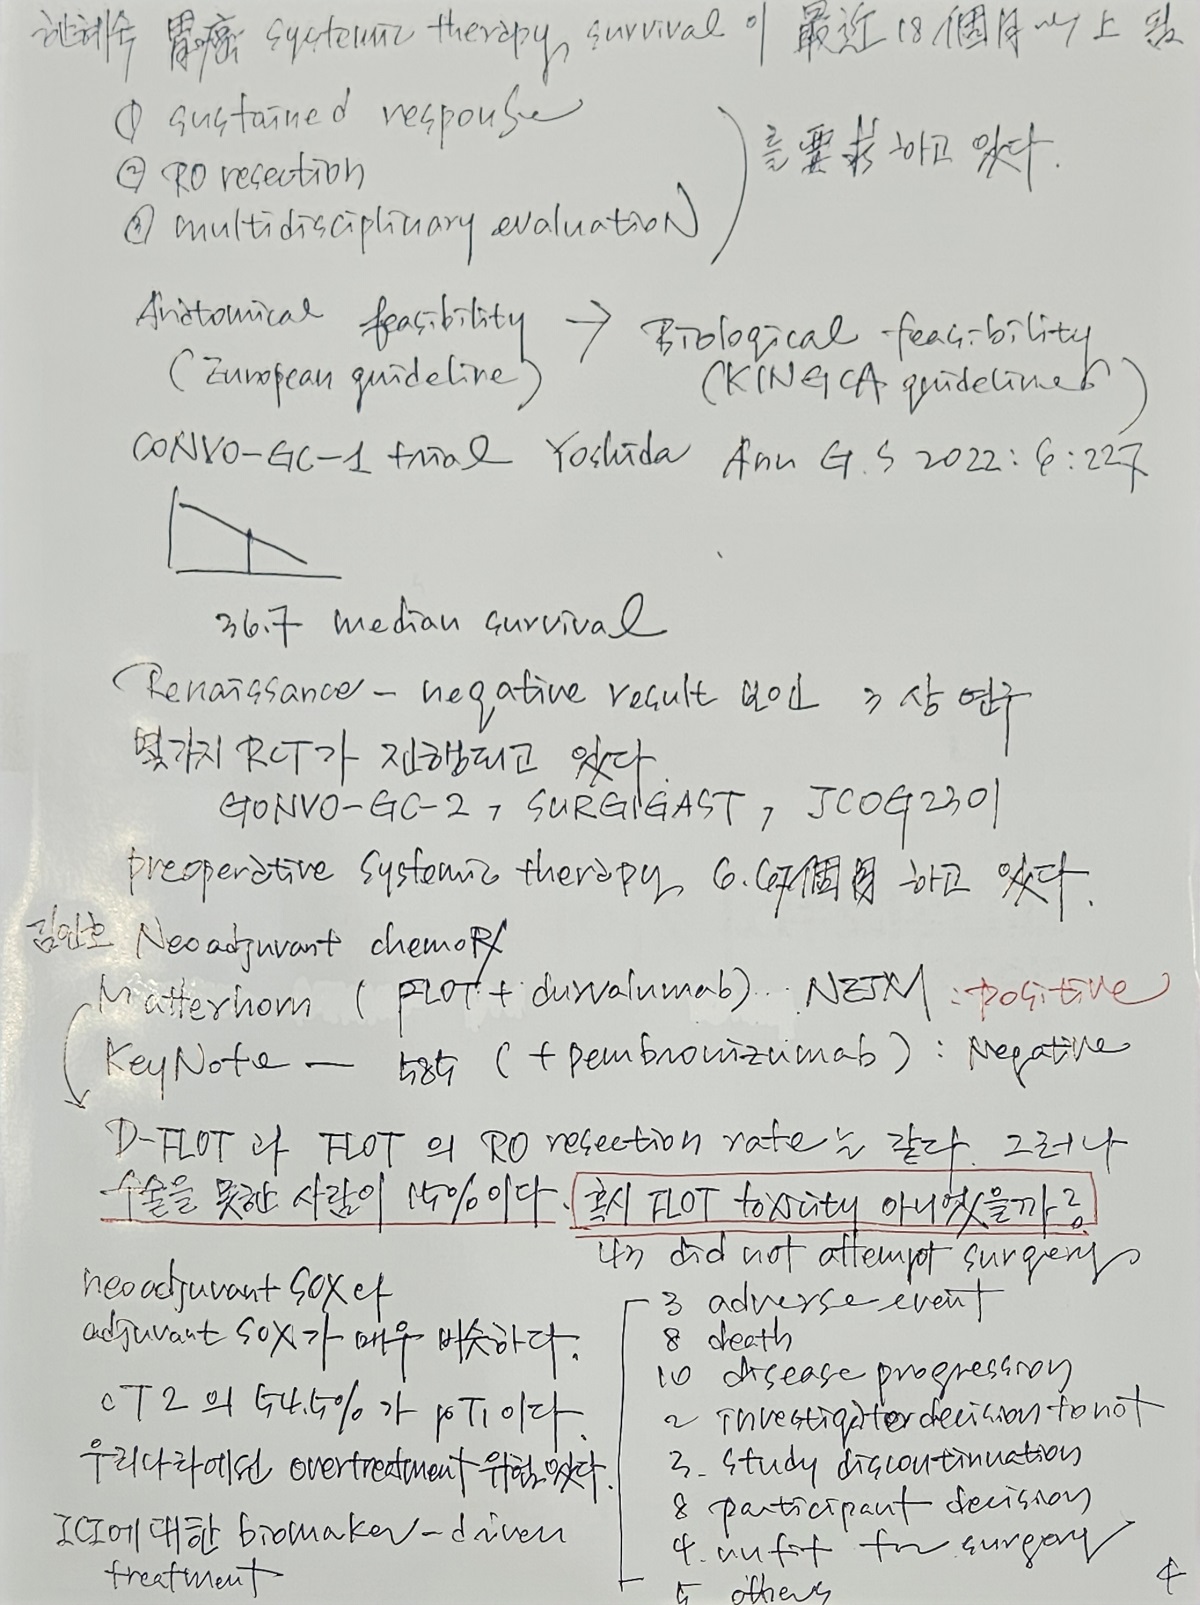 胃癌 systemic therapy, survival이 最近 18個月 以上 됨
① sustained response
② R0 resection
③ multidisciplinary evaluation
를 要求하고 있다.
Anatomical feasibility → Biological feasibility
(European guideline) (KINGCA guidelines)
CONVO-GC-1 trial Yoshida Ann G.S 2022:6:227
36.7 median survival
Renaissance - negative result 보인 3상 연구
몇가지 RCT가 진행되고 있다.
CONVO-GC-2, SURGIGAST, JCOG2301
preoperative systemic therapy, 6.67個月 하고 있다.
김인호 Neoadjuvant chemoRx
Matterhorn (FLOT + durvalumab)... NEJM : positive
KeyNote — 585 (+ pembrorizumab) : Negative
D-FLOT과 FLOT의 R0 resection rate는 같다. 그러나
수술을 못한 사람이 15%이다. 혹시 FLOT toxicity 아니었을까?
43 did not attempt surgery
3 adverse event
8 death
10 disease progression
2 investigator decision to not
3. study discontinuation
8 participant decision
4. unfit for surgery
5 others
neoadjuvant SOX와
adjuvant SOX가 매우 비슷하다.
cT2의 54.5%가 pT1이다.
우리나라에선 overtreatment 위험있다.
ICI에 대한 biomaker-driven
treatment
4